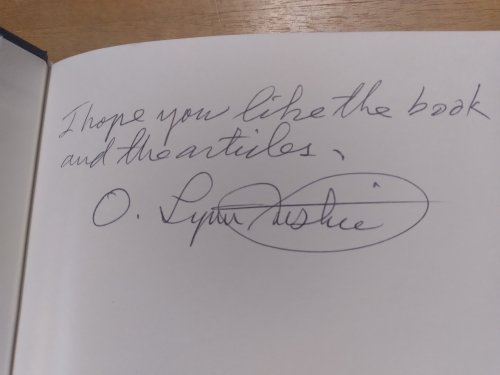 I hope you like the book
and the articles.
O. Lynn